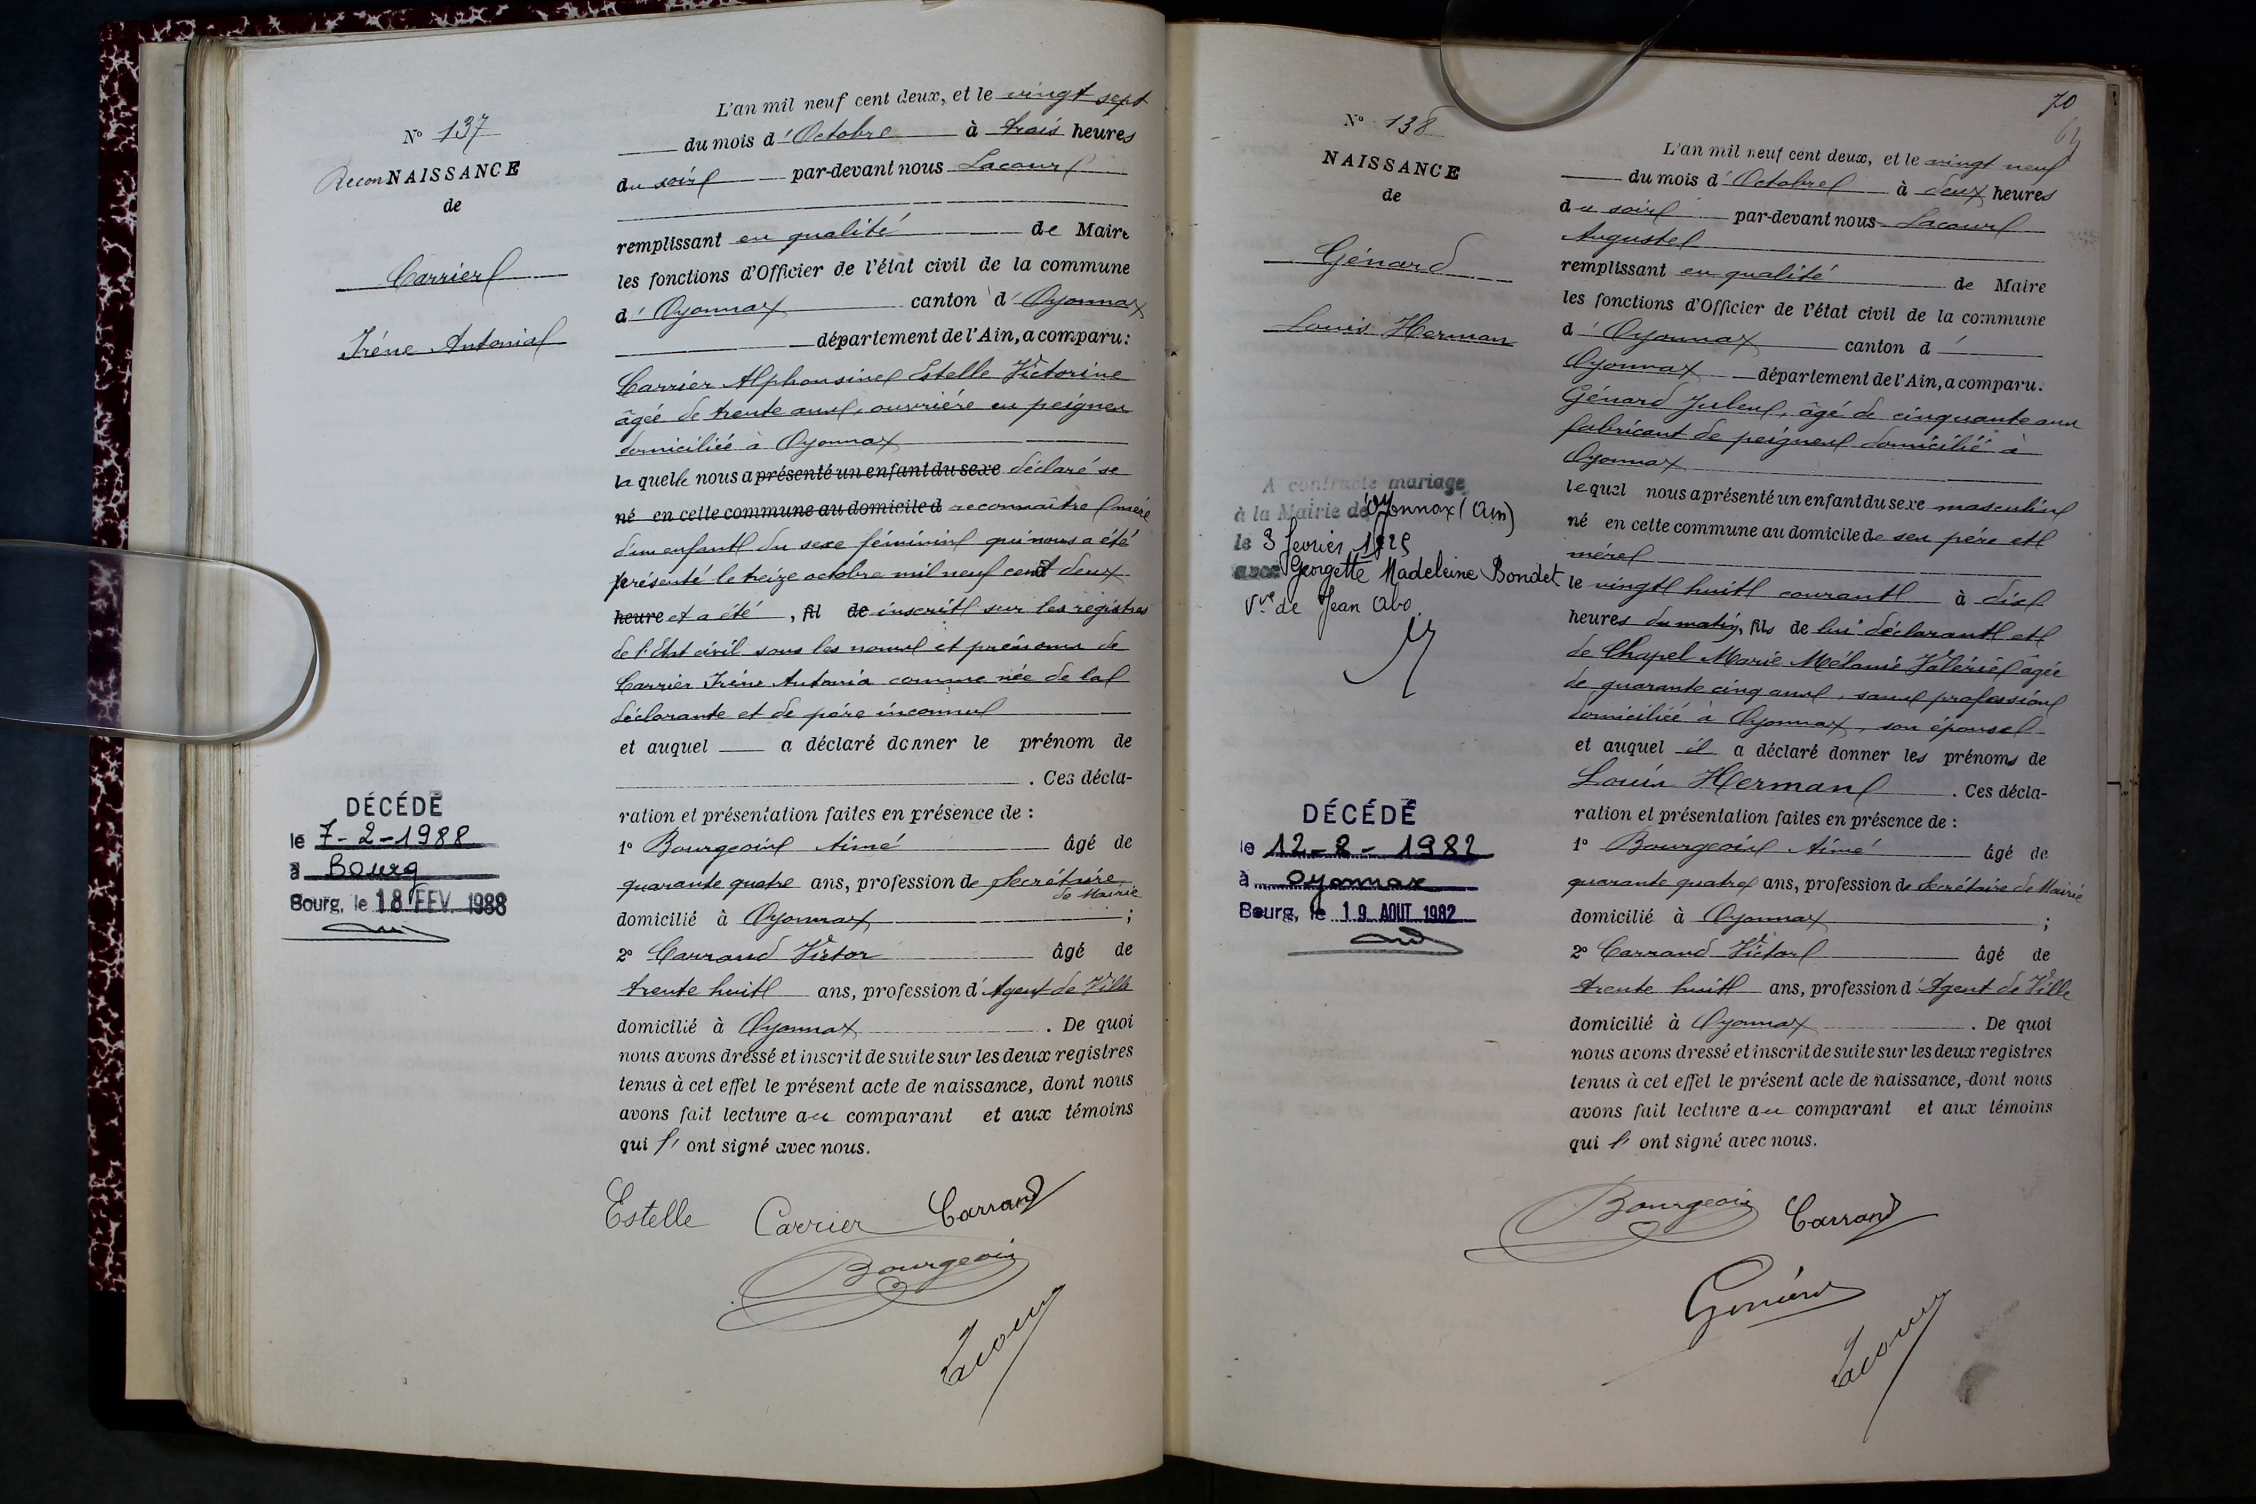 N° 137
ReconNAISSANCE
de
Carrier
Irène Antonia
DÉCÉDÉ
le 7-2-1988
à Bourg
Bourg, le 18 FEV. 1988
L'an mil neuf cent deux, et le vingt sept
du mois d'Octobre à trois heures
du soir par-devant nous Lacour
remplissant en qualité de Maire
les fonctions d'Officier de l'état civil de la commune
d'Oyonnax canton d'Oyonnax
département de l'Ain, a comparu:
Carrier Alphonsine Estelle Victorine
âgée de trente ans, ouvrière en peignes
domiciliée à Oyonnax
laquelle nous a présenté un enfant du sexe déclaré se
né en cette commune au domicile d reconnaître mère
d'un enfant du sexe féminin qui nous a été
présenté le treize octobre mil neuf cent deux
heure et a été, fil de inscrit sur les registres
de l'Etat civil sous les noms et prénoms de
Carrier Irène Antonia comme née de la
déclarante et de père inconnu
et auquel a déclaré donner le prénom de
. Ces décla-
ration et présentation faites en présence de :
1° Bourgeois Aimé âgé de
quarante quatre ans, profession de Secrétaire
de Mairie
domicilié à Oyonnax ;
2° Carrand Victor âgé de
trente huit ans, profession d'Agent de Ville
domicilié à Oyonnax . De quoi
nous avons dressé et inscrit de suite sur les deux registres
tenus à cet effet le présent acte de naissance, dont nous
avons fait lecture au comparant et aux témoins
qui l'ont signé avec nous.
Estelle Carrier Carrand
Bourgeois
Lacour
70
N° 138
NAISSANCE
de
Génard
Louis Herman
A contracté mariage
à la Mairie de Oyonnax (Ain)
le 3 février 1925
avec Georgette Madeleine Bondet
Vve de Jean Abo.
DÉCÉDÉ
le 12-8-1982
à Oyonnax
Bourg, le 19 AOUT 1982
L'an mil neuf cent deux, et le vingt neuf
du mois d'Octobre à deux heures
du soir par-devant nous Lacour
Auguste
remplissant en qualité de Maire
les fonctions d'Officier de l'état civil de la commune
d'Oyonnax canton d'
Oyonnax département de l'Ain, a comparu.
Génard Jules, âgé de cinquante ans
fabricant de peignes domicilié à
Oyonnax
lequel nous a présenté un enfant du sexe masculin
né en cette commune au domicile de ses père et
mère
le vingt huit courant à dix
heures du matin, fils de lui déclarant et
de Chapel Marie Mélanie Valérie âgée
de quarante cinq ans, sans profession
domiciliée à Oyonnax, son épouse
et auquel il a déclaré donner les prénoms de
Louis Herman . Ces décla-
ration et présentation faites en présence de :
1° Bourgeois Aimé âgé de
quarante quatre ans, profession de Secrétaire de Mairie
domicilié à Oyonnax ;
2° Carrand Victor âgé de
trente huit ans, profession d'Agent de Ville
domicilié à Oyonnax . De quoi
nous avons dressé et inscrit de suite sur les deux registres
tenus à cet effet le présent acte de naissance, dont nous
avons fait lecture au comparant et aux témoins
qui l'ont signé avec nous.
Bourgeois Carrand
Génard
Lacour